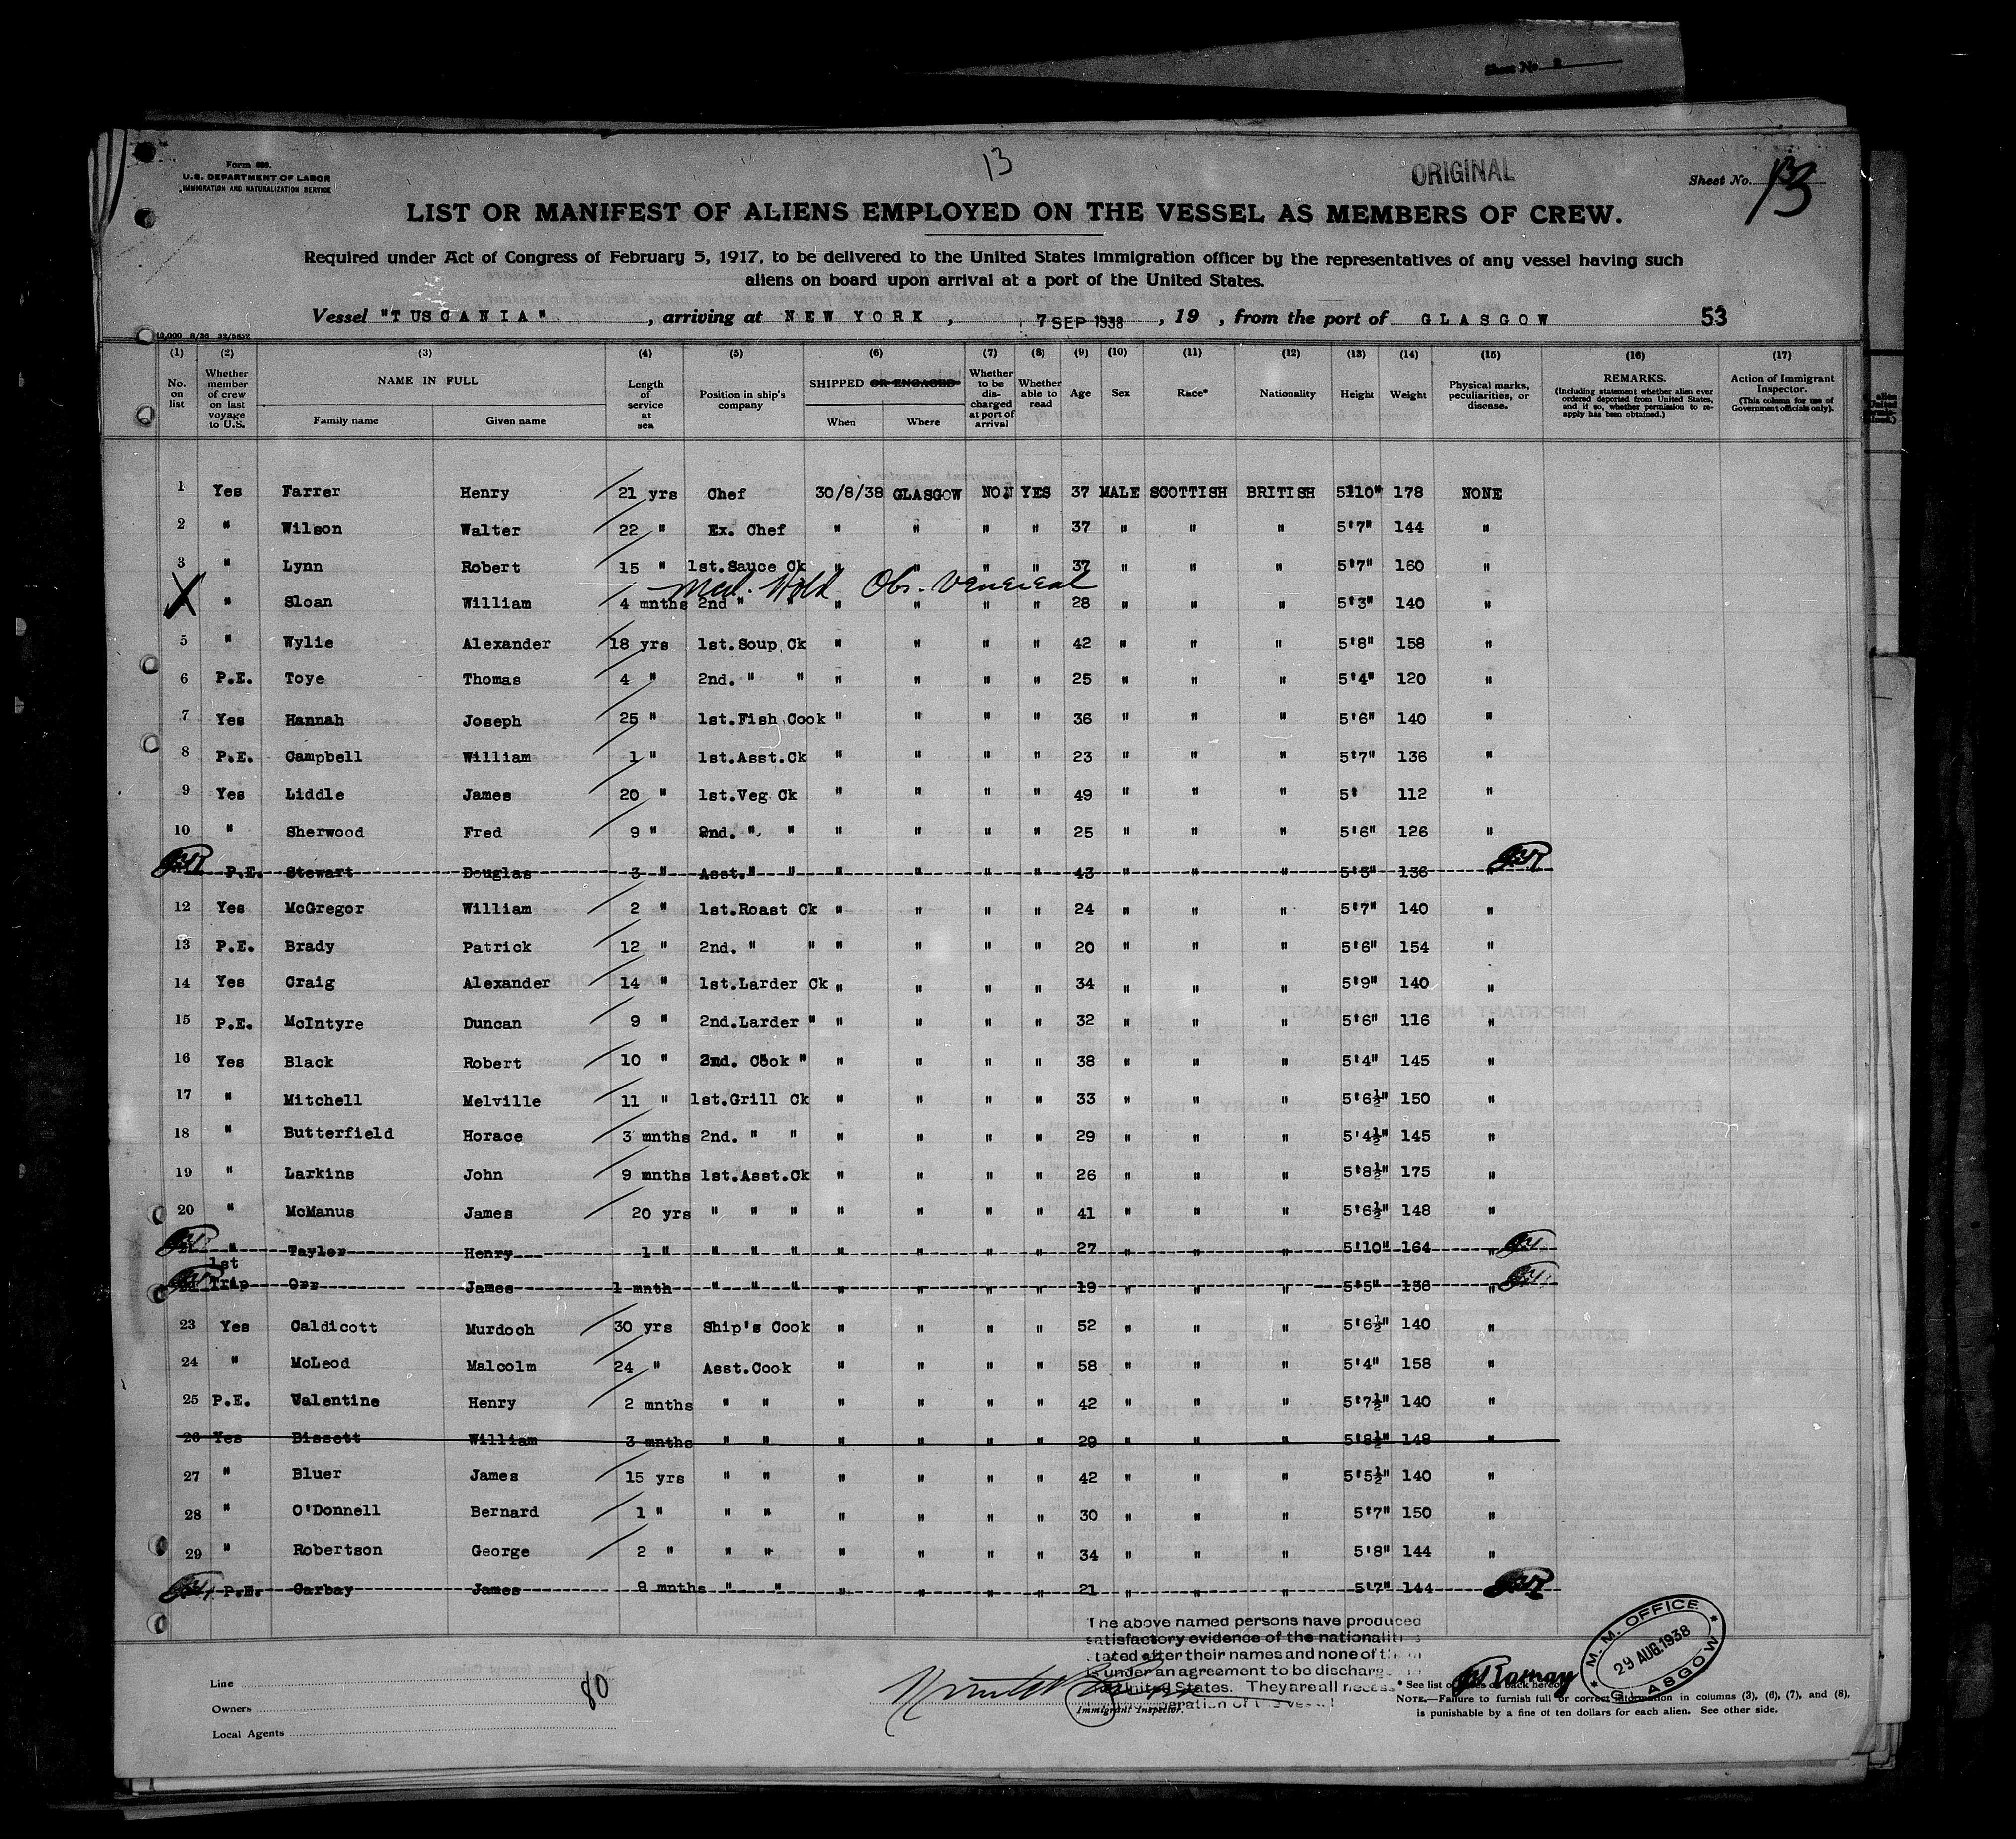 Sheet No. 2
Form 689.
U.S. DEPARTMENT OF LABOR
IMMIGRATION AND NATURALIZATION SERVICE
13
ORIGINAL
Sheet No. 13
LIST OR MANIFEST OF ALIENS EMPLOYED ON THE VESSEL AS MEMBERS OF CREW.
Required under Act of Congress of February 5, 1917, to be delivered to the United States immigration officer by the representatives of any vessel having such
aliens on board upon arrival at a port of the United States.
Vessel "TUSCANIA", arriving at NEW YORK, 7 SEP 1938, 19 , from the port of GLASGOW 53
10,000 8/36 32/5652
(1) (2) (3) (4) (5) (6) (7) (8) (9) (10) (11) (12) (13) (14) (15) (16) (17)
No. on list
Whether member of crew on last voyage to U.S.
NAME IN FULL
Family name Given name
Length of service at sea
Position in ship's company
SHIPPED OR ENGAGED
When Where
Whether to be discharged at port of arrival
Whether able to read
Age Sex Race* Nationality Height Weight
Physical marks, peculiarities, or disease.
REMARKS.
(Including statement whether alien ever ordered deported from United States, and if so, whether permission to re-apply has been obtained.)
Action of Immigrant Inspector.
(This column for use of Government officials only).
1 Yes Farrer Henry 21 yrs Chef 30/8/38 GLASGOW NON YES 37 MALE SCOTTISH BRITISH 5'10" 178 NONE
2 " Wilson Walter 22 " Ex. Chef " " " " 37 " " " 5'7" 144 "
3 " Lynn Robert 15 " 1st.Sauce Ck " " " " 37 " " " 5'7" 160 "
Med. Hold Obs. Venereal
X " Sloan William 4 mnths 2nd " " " " " " 28 " " " 5'3" 140 "
5 " Wylie Alexander 18 yrs 1st.Soup Ck " " " " 42 " " " 5'8" 158 "
6 P.E. Toye Thomas 4 " 2nd. " " " " " " 25 " " " 5'4" 120 "
7 Yes Hannah Joseph 25 " 1st.Fish Cook " " " " 36 " " " 5'6" 140 "
8 P.E. Campbell William 1 " 1st.Asst.Ck " " " " 23 " " " 5'7" 136 "
9 Yes Liddle James 20 " 1st.Veg Ck " " " " 49 " " " 5' 112 "
10 " Sherwood Fred 9 " 2nd. " " " " " " 25 " " " 5'6" 126 "
P.E. Stewart Douglas 3 " Asst. " " " " " " 43 " " " 5'5" 136 "
12 Yes McGregor William 2 " 1st.Roast Ck " " " " 24 " " " 5'7" 140 "
13 P.E. Brady Patrick 12 " 2nd. " " " " " " 20 " " " 5'6" 154 "
14 Yes Craig Alexander 14 " 1st.Larder Ck " " " " 34 " " " 5'9" 140 "
15 P.E. McIntyre Duncan 9 " 2nd.Larder " " " " " 32 " " " 5'6" 116 "
16 Yes Black Robert 10 " 2nd. Cook " " " " " 38 " " " 5'4" 145 "
17 " Mitchell Melville 11 " 1st.Grill Ck " " " " 33 " " " 5'6½" 150 "
18 " Butterfield Horace 3 mnths 2nd. " " " " " " 29 " " " 5'4½" 145 "
19 " Larkins John 9 mnths 1st.Asst.Ck " " " " 26 " " " 5'8½" 175 "
20 " McManus James 20 yrs " " " " " " " 41 " " " 5'6½" 148 "
" Tayler Henry 1 " " " " " " " " 27 " " " 5'10" 164 "
1st Trip Orr James 1 mnth " " " " " " " 19 " " " 5'5" 136 "
23 Yes Caldicott Murdoch 30 yrs Ship's Cook " " " " 52 " " " 5'6½" 140 "
24 " McLeod Malcolm 24 " Asst.Cook " " " " 58 " " " 5'4" 158 "
25 P.E. Valentine Henry 2 mnths " " " " " " 42 " " " 5'7½" 140 "
26 Yes Bissett William 3 mnths " " " " " " 29 " " " 5'8½" 148 "
27 " Bluer James 15 yrs " " " " " " 42 " " " 5'5½" 140 "
28 " O'Donnell Bernard 1 " " " " " " " 30 " " " 5'7" 150 "
29 " Robertson George 2 " " " " " " " 34 " " " 5'8" 144 "
P.E. Garbay James 9 mnths " " " " " " 21 " " " 5'7" 144 "
The above named persons have produced
satisfactory evidence of the nationalities
stated after their names and none of them
is under an agreement to be discharged in
the United States. They are all necess
operation of the vessel
Line
Owners
Local Agents
80
Immigrant Inspector.
Ramay
M. M. OFFICE
29 AUG. 1938
GLASGOW
* See list of races on back hereof
NOTE.—Failure to furnish full or correct information in columns (3), (6), (7), and (8),
is punishable by a fine of ten dollars for each alien. See other side.